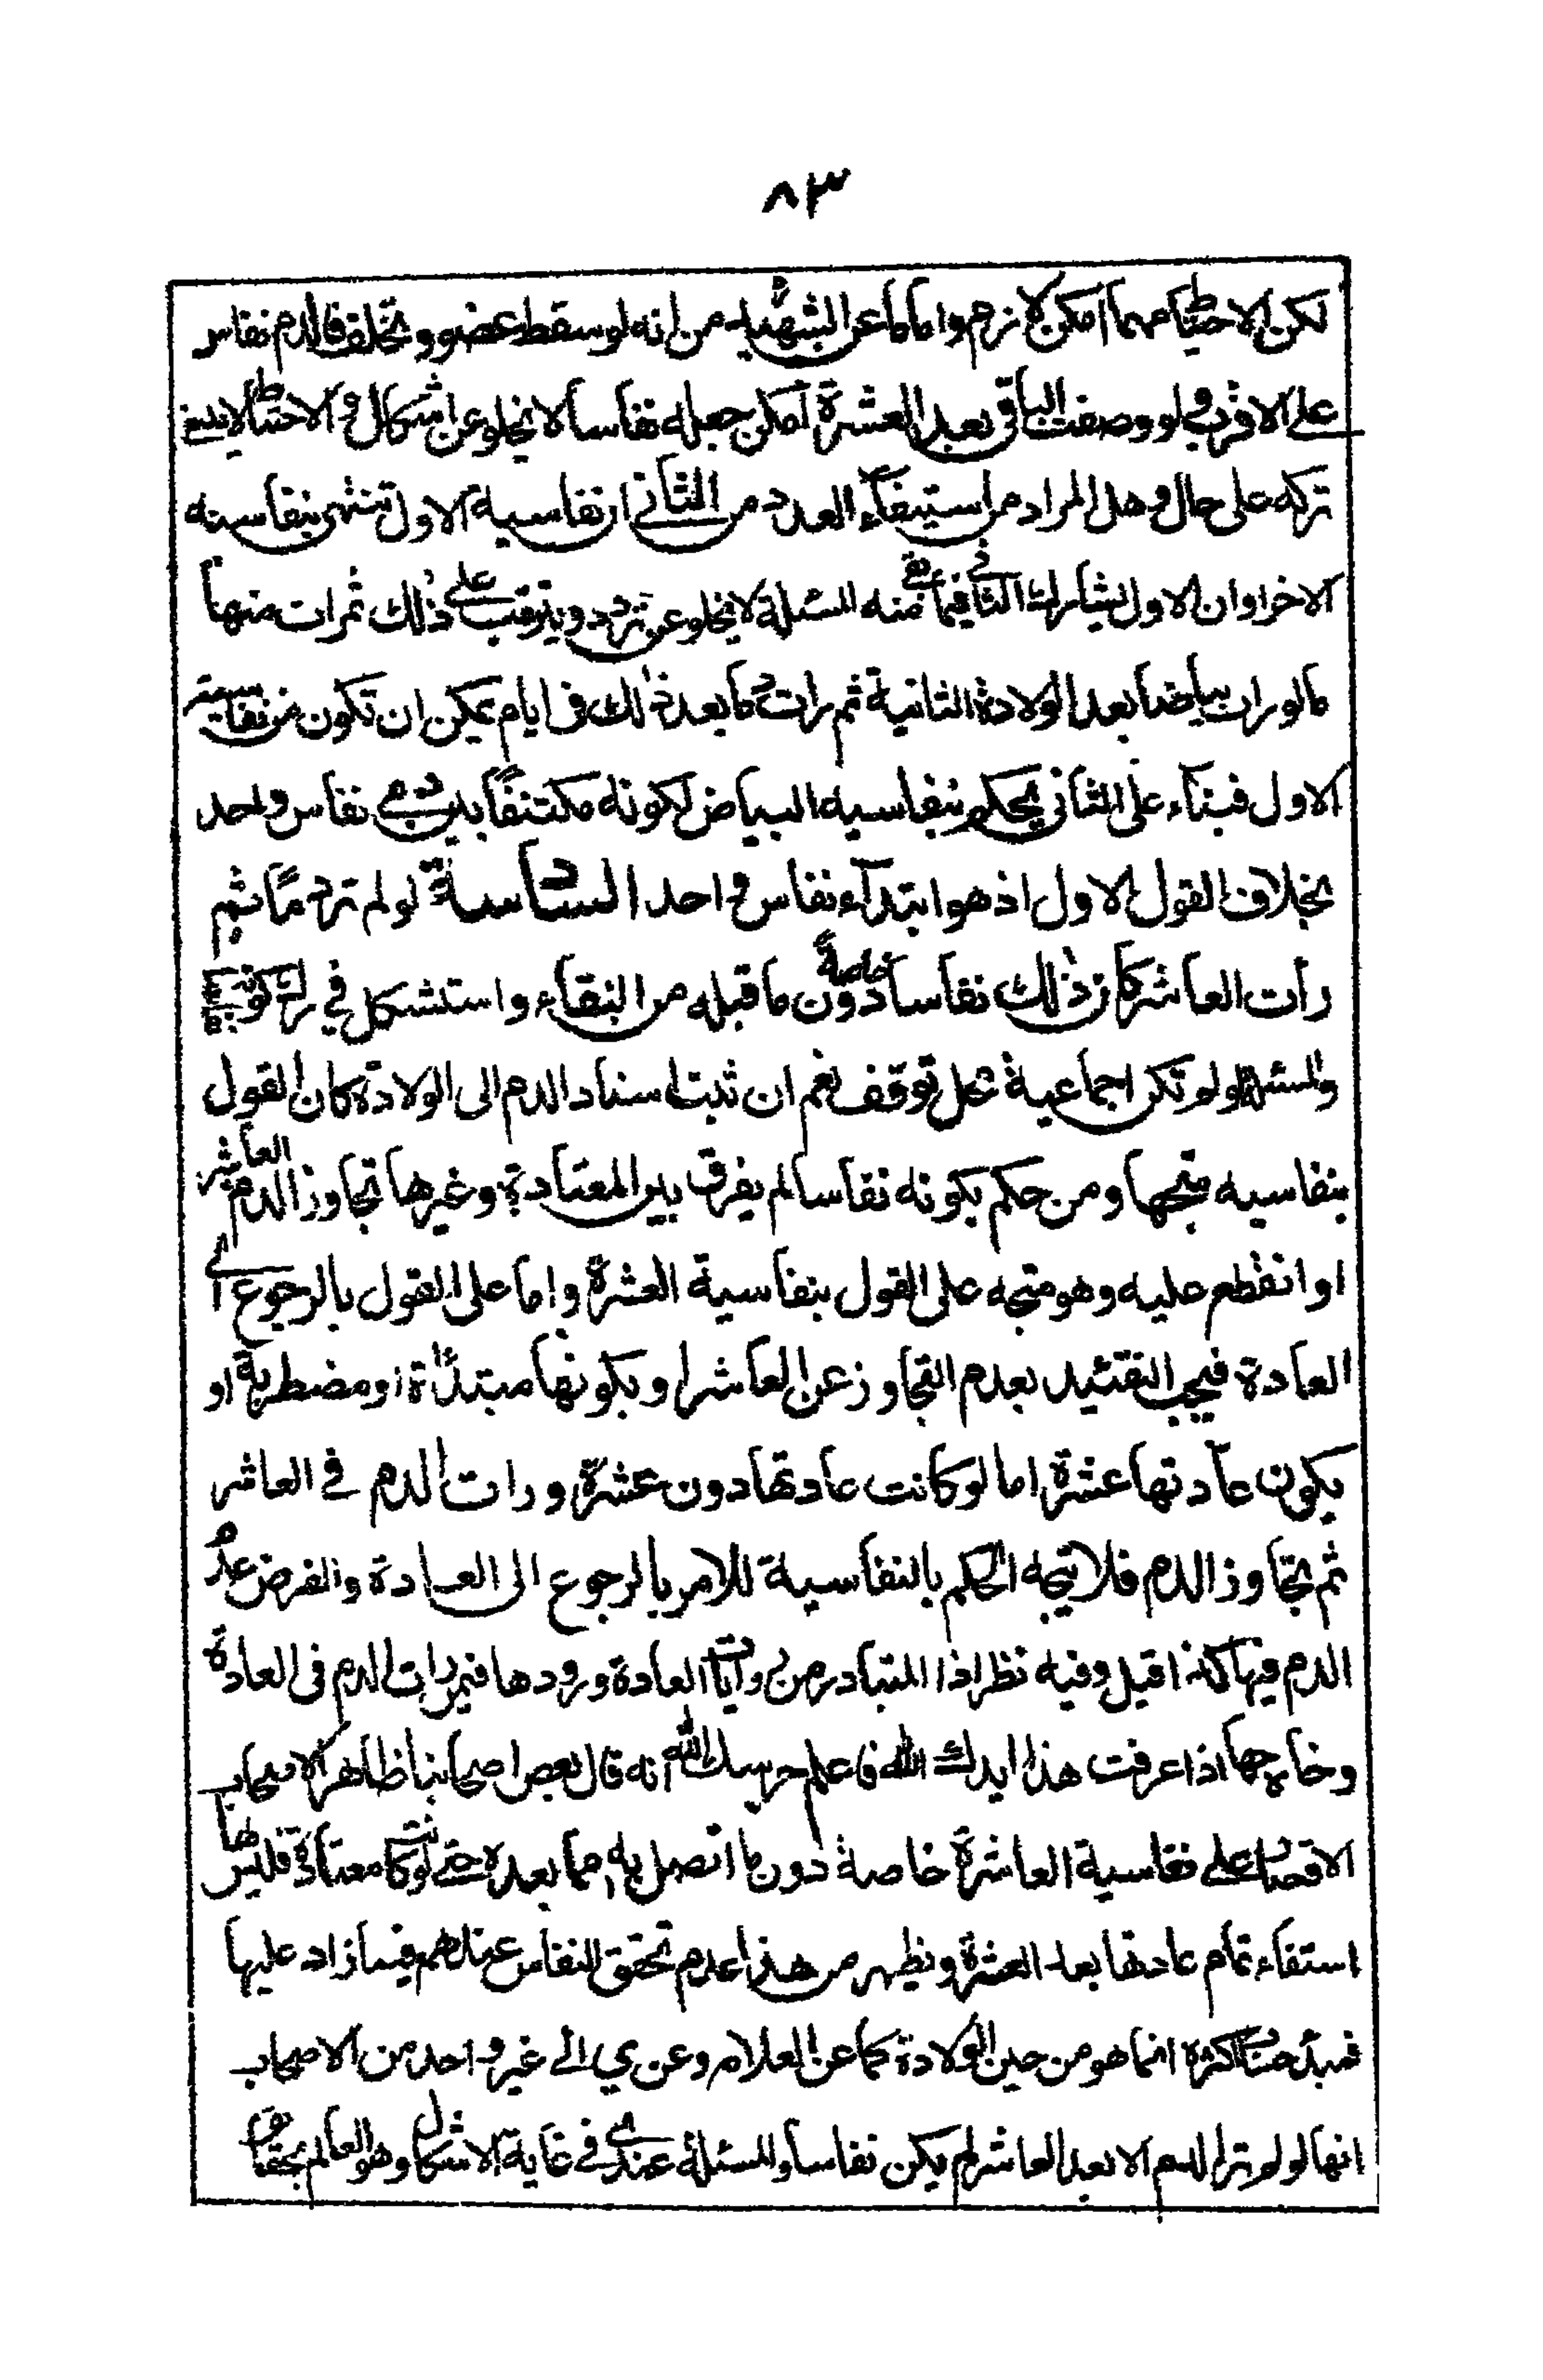 ٨٣
لكن الاحتياط مهما امكن لازم واما ما عن الشهيد من انه لو سقط عضو وتخلف فالدم نفاس
على الاقرب ولو وضعت الباقي بعد العشرة امكن جعله نفاسا لا يخلو عن اشكال والاحتياط لا ينبغي
تركه على حال وهل المراد من استيفاء العدد من الثاني ان نفاسية الاول تنتهي بنفاسية
الاخر او ان الاول يشارك الثاني فيما بقي منه المسئلة لا يخلو عن تردد ويترتب على ذلك ثمرات منها
ما لو رات بياضا بعد الولادة الثانية ثم رات دما بعد ذلك في ايام يمكن ان تكون من نفاسية
الاول فبناء على الثاني يحكم بنفاسية البياض لكونه مكتنفا بدمي نفاس واحد
بخلاف القول الاول اذ هو ابتداء نفاس واحد السادسة لو لم تر دما ثم
رأت العاشر كان ذلك نفاسا خاصة دون ما قبله من النقاء واستشكل في
والمسئلة لو لم تكن اجماعية محل توقف نعم ان ثبت اسناد الدم الى الولادة كان القول
بنفاسيه متجها ومن حكم بكونه نفاسا لم يفرق بين المعتادة وغيرها تجاوز الدم العاشر
او انقطع عليه وهو متجه على القول بنفاسية العشرة واما على القول بالرجوع الى
العادة فيجب التقئيد بعدم التجاوز عن العاشر او بكونها مبتدأة او مضطربة او
يكون عادتها عشرة اما لو كانت عادتها دون عشرة ورات الدم في العاشر
ثم تجاوز الدم فلا يتجه الحكم بالنفاسية للامر بالرجوع الى العادة والفرض عدم
الدم فيها كذا قيل وفيه نظر اذ المتبادر من روايات العادة ورودها فيمن رات الدم في العادة
وخارجها اذا عرفت هذا ايدك الله فاعلم حرسك الله انه قال بعض اصحابنا ظاهر الاصحاب
الاقتصار على نفاسية العاشرة خاصة دون ما اتصل به مما بعده حتى لو كانت معتادة فليس لها
استفاء تمام عادتها بعد العشرة ويظهر من هذا عدم تحقق النفاس عندهم فيما زاد عليها
فمبدء حساب اكثره انما هو من حين الولادة كما عن العلامه وعن ي الى غير واحد من الاصحاب
انها لو لم تر الدم الا بعد العاشر لم يكن نفاسا والمسئلة عندي في غاية الاشكال وهو العالم بحقايق